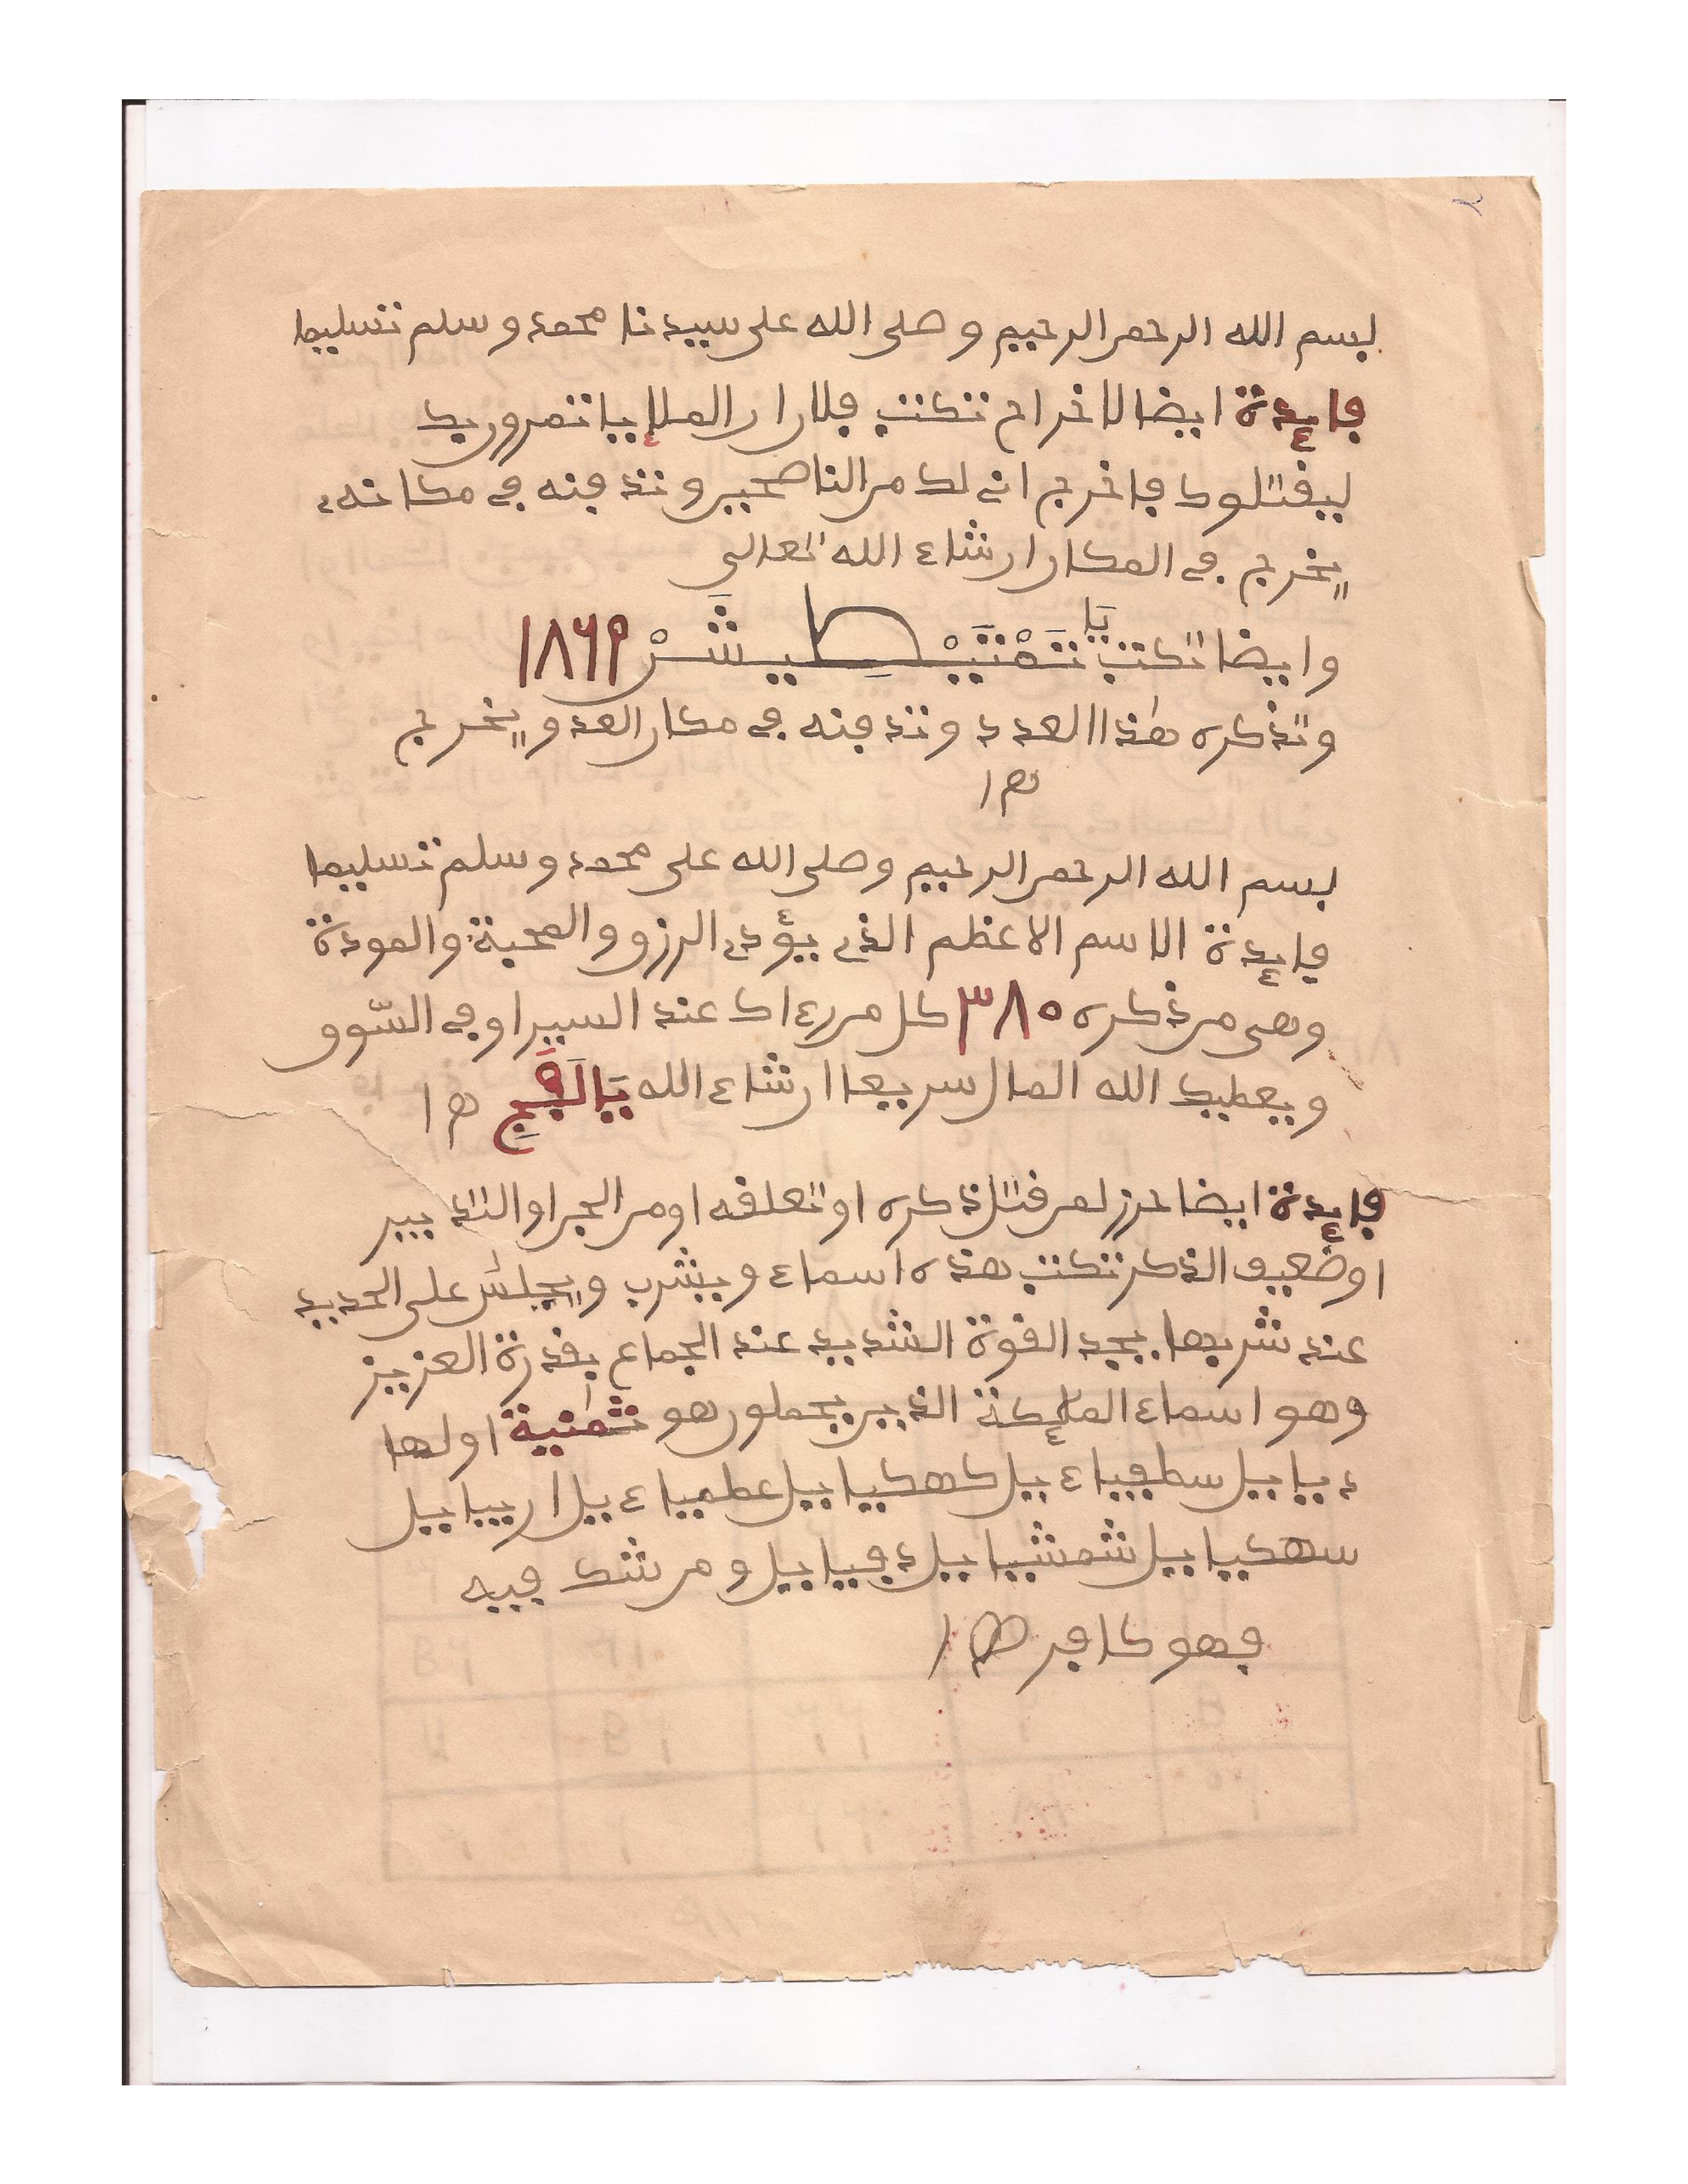 بسم الله الرحمن الرحيم وصلى الله على سيدنا محمد وسلم تسليما
فايدة ايضا لاخراج تكتب فلا ان الملا ياتمرون بك
ليقتلوك فاخرج اني لك من الناصحين وتدفنه في مكانه
يخرج في المكان ان شاء الله تعالى
وايضا تكتب يا ١٨٦٩
وتذكره هذا العدد وتدفنه في مكان العدو يخرج
ه ا
بسم الله الرحمن الرحيم وصلى الله على محمد وسلم تسليما
فايدة الاسم الاعظم الذي يؤدي الرزق والمحبة والمودة
وهي من ذكره ٣٨٠ كل عند السير او في السّوق
ويعطيك الله المال سريعا ان شاء الله يَا ه ا
فايدة ايضا حرز لمن قتل ذكره او تعلقه او من الجن او
او ضعيف الذكر تكتب هذه اسماء ويشرب ويجلس على الحديد
عند شربها يجد القوة الشديد عند الجماع بقدرة العزيز
وهو اسماء الملئكة الذين يحملون هو ثمنية اولها
ديابيل سطفياءيل كهكيابيل عطمياءيل اريبابيل
سهكيابيل شمشيابيل دفيابيل ومن شك فيه
فهو كافر ه ا